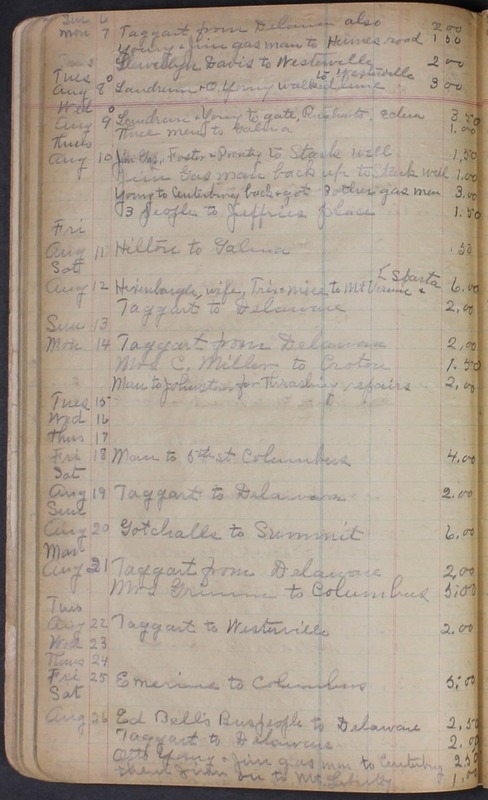 Sun 6
Mon 7 Taggart from Delaware also 2 00
Young + Jim gas man to Humes road 1 50
8 Llewellyn Davis to Westerville 2 00
Tues to Westerville
Aug 8 Landrum + O. Young walked line 3 00
Wed
Aug 9 Landrum + Young to gate, Galena 3.50
Three men to Galena 1.00
Thurs
Aug 10 Jim Gas, Foster + to Stack well 1.50
Jim Gas man back up to Stack well 1.00
Young to Centerburg back + got 2 other gas men 3.00
3 people to Jeffries place 1.50
Fri
Aug 11 Hilton to Galena .50
Sat E Sparta
Aug 12 wife, + niece to Mt Vernon + 6.00
Taggart to Delaware 2.00
Sun 13
Mon 14 Taggart from Delaware 2.00
Mrs C. Miller to Croton 1.50
Man to Johnstown for Thrashing repairs 2.00
Tues 15
Wed 16
Thus 17
Fri 18 Man to 5th st Columbus 4.00
Sat
Aug 19 Taggart to Delaware 2.00
Sun
Aug 20 Gotchalls to Summit 6.00
Mon
Aug 21 Taggart from Delaware 2.00
Mrs Grimm to Columbus 5.00
Tues
Aug 22 Taggart to Westerville 2.00
Wed 23
Thurs 24
Fri 25 Emerine to Columbus 5.00
Sat
Aug 26 Ed Bell's Bus people to Delaware 2.50
Taggart to Delaware 2.00
Otto Young + Jim gas man to Centerburg 2.50
then on to Mt Liberty 1.00